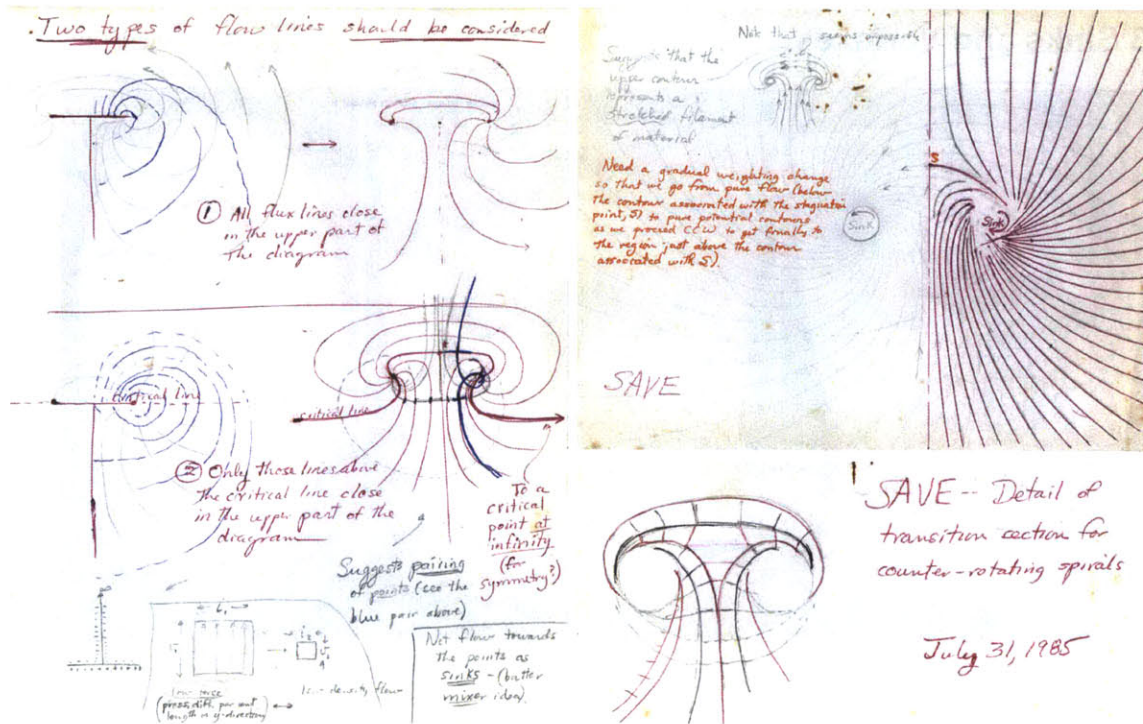 Two types of flow lines should be considered
① All flux lines close
in the upper part of
the diagram
critical line
critical line
② Only those lines above
the critical line close
in the upper part of the
diagram
To a
critical
point at
infinity
(for
symmetry?)
Suggests pairing
of points (see the
blue pair above)
Net flow towards
the points as
sinks - (butter
mixer idea)
(press. diff. per unit
length in y-direction)
density flow
Note that seems impossible
Suggests that the
upper contour
represents a
stretched filament
of material
Need a gradual weighting change
so that we go from pure flow (below
the contour associated with the stagnation
point, S) to pure potential contours
as we proceed CCW to get finally to
the region just above the contour
associated with S).
S
Sink
Sink
SAVE
SAVE -- Detail of
transition section for
counter-rotating spirals
July 31, 1985